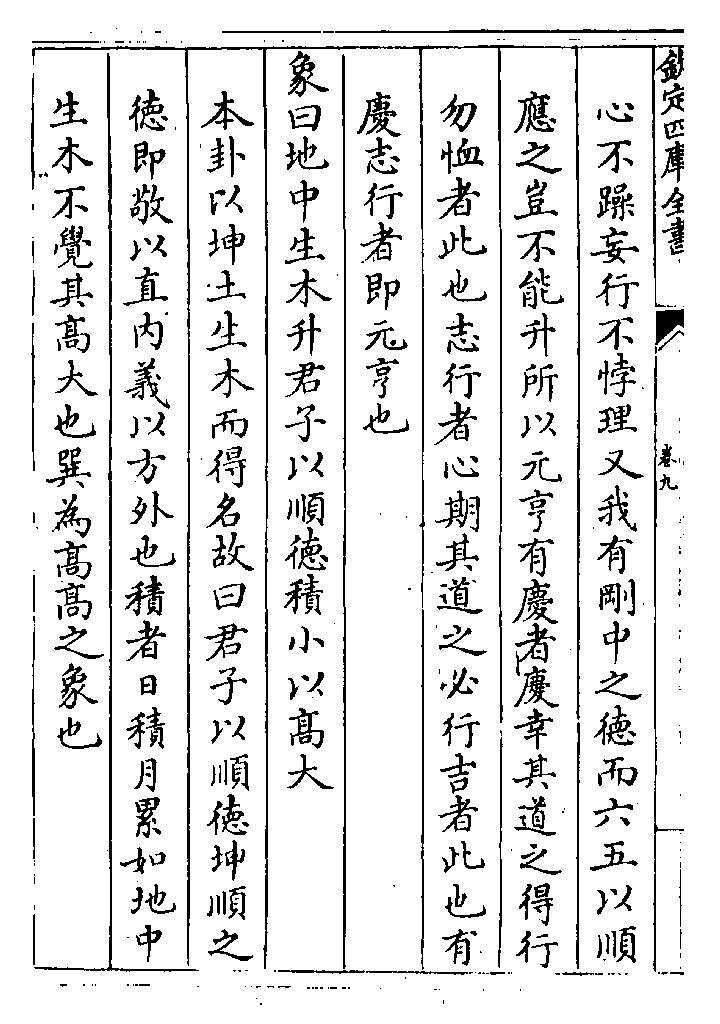 欽定四庫全書
卷九
心不躁妄行不悖理又我有剛中之德而六五以順
應之豈不能升所以元亨有慶者慶幸其道之得行
勿恤者此也志行者心期其道之必行吉者此也有
慶志行者即元亨也
象曰地中生木升君子以順德積小以髙大
本卦以坤土生木而得名故曰君子以順德坤順之
德即敬以直内義以方外也積者日積月累如地中
生木不覺其髙大也巽為髙髙之象也